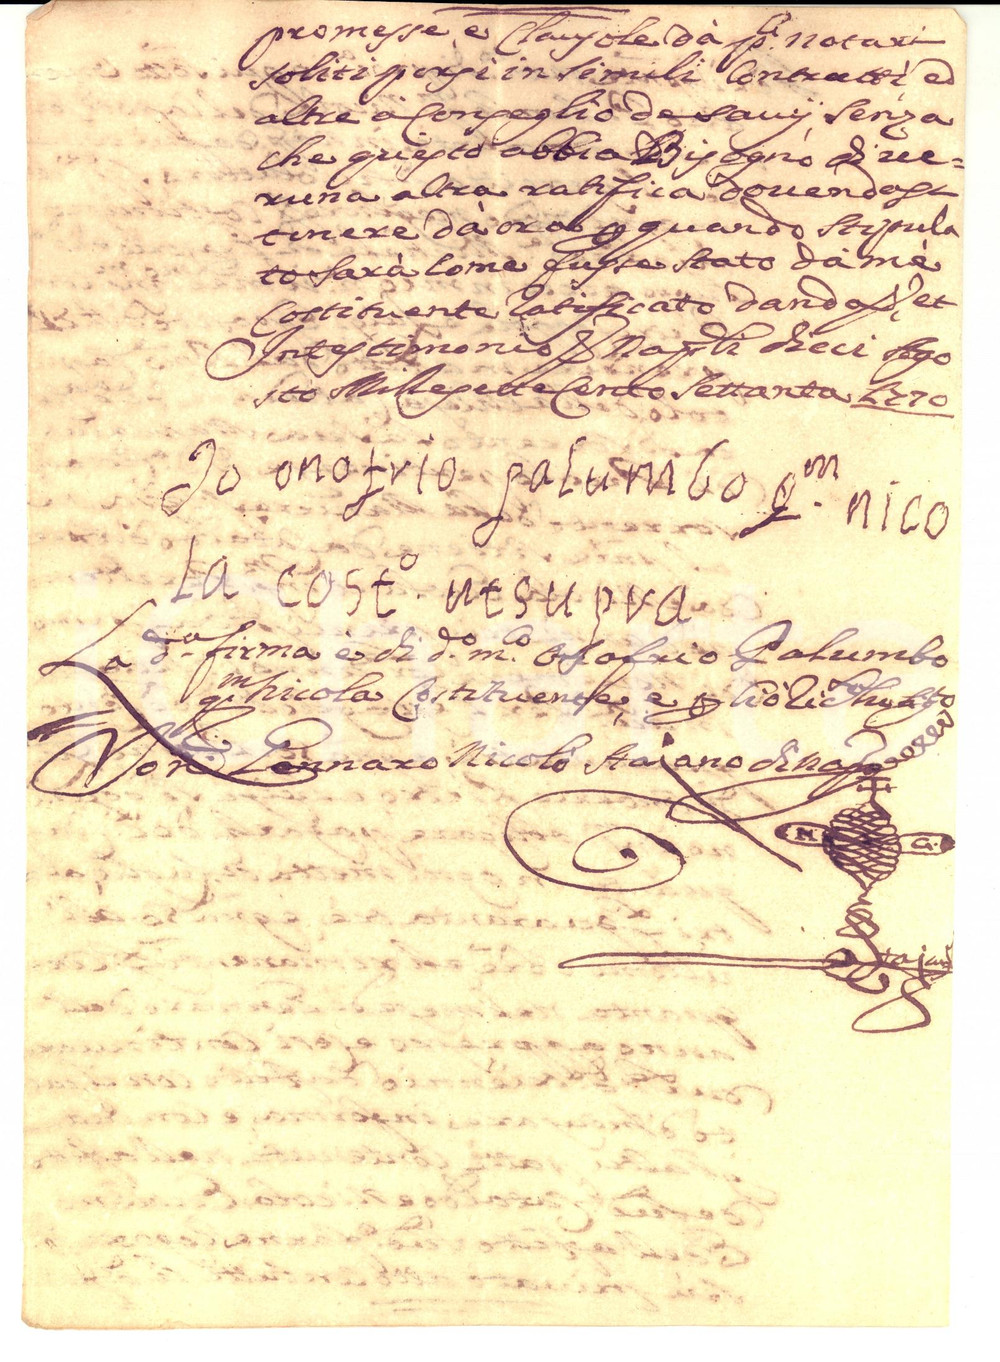 promesse, e Clausole dà pli. notari
soliti porsi in simili Contratti, ed
altre à Conseglio de savij senza
che questo abbia Bisogno di ve=
runa altra ratifica dovendosi
tinere dà ora p quando stipula
to sarà come fusse stato dà mè
Costituente ratificato dando, et
In testimonio Napoli dieci Ago
sto Millesettecento settanta 1770
Io onofrio palumbo qm. nico
La costo. ut supra
La da. firma è di do. mco. Onofrio Palumbo
qm Nicola Costituente, e p
Nor. Gennaro Nicolò Stajano di Nap
N. G.
Stajano